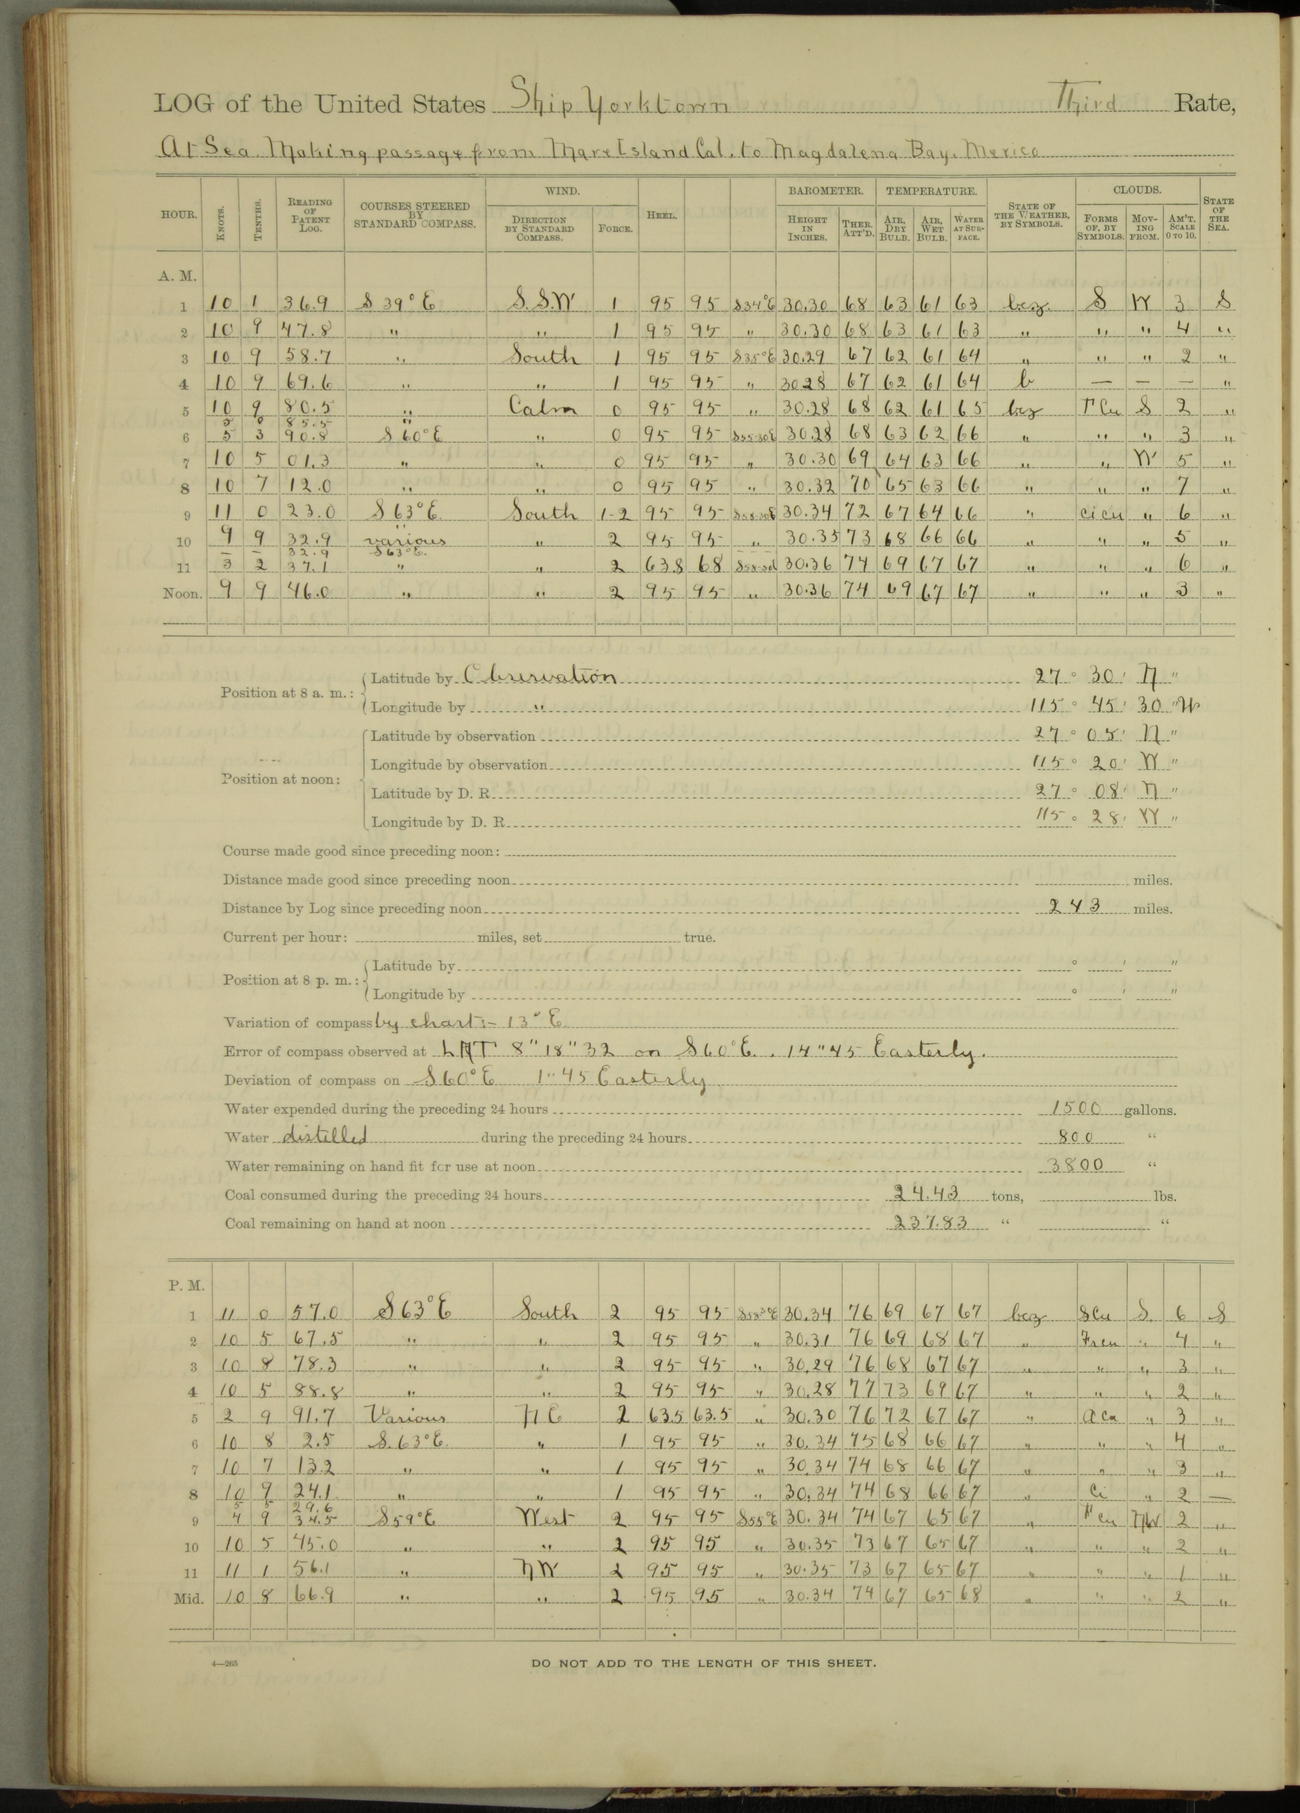 LOG of the United States Ship Yorktown Third Rate,
At Sea Making passage from Mare Island Cal. to Magdalena Bay, Mexico
HOUR. KNOTS. TENTHS. READING OF PATENT LOG. COURSES STEERED BY STANDARD COMPASS. WIND. DIRECTION BY STANDARD COMPASS. FORCE. HEEL. BAROMETER. HEIGHT IN INCHES. THER. ATT'D. TEMPERATURE. AIR, DRY BULB. AIR, WET BULB. WATER AT SURFACE. STATE OF THE WEATHER, BY SYMBOLS. CLOUDS. FORMS OF, BY SYMBOLS. MOVING FROM. AM'T. SCALE 0 TO 10. STATE OF THE SEA.
A. M.
1 10 1 36.9 S 39° E S.S.W 1 95 95 S34°E 30.30 68 63 61 63 bcz S W 3 S
2 10 9 47.8 " " 1 95 95 " 30.30 68 63 61 63 " " " 4 "
3 10 9 58.7 " South 1 95 95 S35°E 30.29 67 62 61 64 " " " 2 "
4 10 9 69.6 " " 1 95 95 " 30.28 67 62 61 64 b — — — "
5 10 9 80.5 " Calm 0 95 95 " 30.28 68 62 61 65 bcz Cu S 2 "
85.5 "
6 5 3 90.8 S 60° E " 0 95 95 30.28 68 63 62 66 " " " 3 "
7 10 5 01.3 " " 0 95 95 " 30.30 69 64 63 66 " " W 5 "
8 10 7 12.0 " " 0 95 95 " 30.32 70 65 63 66 " " " 7 "
9 11 0 23.0 S 63° E South 1-2 95 95 30.34 72 67 64 66 " ci cu " 6 "
10 9 9 32.9 various " 2 95 95 " 30.35 73 68 66 66 " " " 5 "
— — 32.9 S 63° E.
11 3 2 37.1 " " 2 63.8 68 30.36 74 69 67 67 " " " 6 "
Noon. 9 9 46.0 " " 2 95 95 " 30.36 74 69 67 67 " " " 3 "
Position at 8 a. m.: Latitude by Observation 27 ° 30 ' N "
Longitude by " 115 ° 45 ' 30 " W
Position at noon: Latitude by observation 27 ° 05 ' N "
Longitude by observation 115 ° 20 ' W "
Latitude by D. R. 27 ° 08 ' N "
Longitude by D. R. 115 ° 28 ' W "
Course made good since preceding noon:
Distance made good since preceding noon miles.
Distance by Log since preceding noon 243 miles.
Current per hour: miles, set true.
Position at 8 p. m.: Latitude by ° ' "
Longitude by ° ' "
Variation of compass by chart:- 13° E
Error of compass observed at 8" 18" 32 on S 60° E. 14" 45 Easterly.
Deviation of compass on S 60° E 1" 45 Easterly
Water expended during the preceding 24 hours 1500 gallons.
Water distilled during the preceding 24 hours 800 "
Water remaining on hand fit for use at noon 3800 "
Coal consumed during the preceding 24 hours 24.43 tons, lbs.
Coal remaining on hand at noon 237.83 " "
P. M.
1 11 0 57.0 S 63° E South 2 95 95 30.34 76 69 67 67 bcz S Cu S. 6 S
2 10 5 67.5 " " 2 95 95 " 30.31 76 69 68 67 " Fr cu " 4 "
3 10 8 78.3 " " 2 95 95 " 30.29 76 68 67 67 " " " 3 "
4 10 5 88.8 " " 2 95 95 " 30.28 77 73 69 67 " " " 2 "
5 2 9 91.7 Various N E 2 63.5 63.5 " 30.30 76 72 67 67 " a cu " 3 "
6 10 8 2.5 S. 63° E. " 1 95 95 " 30.34 75 68 66 67 " " " 4 "
7 10 7 13.2 " " 1 95 95 " 30.34 74 68 66 67 " " " 3 "
8 10 9 24.1 " " 1 95 95 " 30.34 74 68 66 67 " Ci " 2 —
5 5 29.6
9 4 9 34.5 S 59° E West 2 95 95 S55°E 30.34 74 67 65 67 " cu NW 2 "
10 10 5 45.0 " " 2 95 95 " 30.35 73 67 65 67 " " " 2 "
11 11 1 56.1 " N W 2 95 95 30.35 73 67 65 67 " " " 1 "
Mid. 10 8 66.9 " " 2 95 95 " 30.34 74 67 65 68 " " " 2 "
4—265
DO NOT ADD TO THE LENGTH OF THIS SHEET.